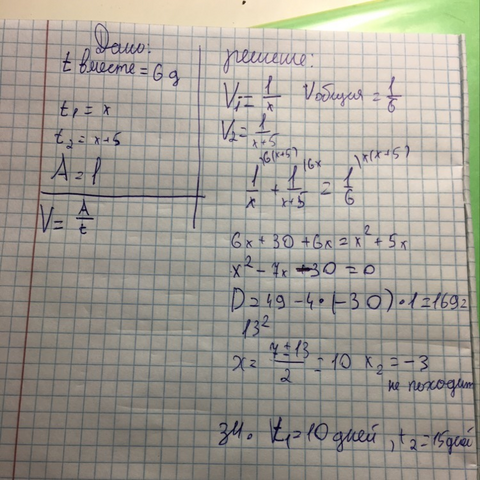 Дано:
t вместе = 6 д
t₁ = x
t₂ = x+5
A = 1
V = A/t
решение:
V₁ = 1/x Vобщая = 1/6
V₂ = 1/x+5
1/x \6(x+5) + 1/x+5 \6x = 1/6 \x(x+5)
6x + 30 + 6x = x² + 5x
x² - 7x - 30 = 0
D = 49 - 4·(-30)·1 = 169 =
13²
x = 7±13/2 = 10 x₂ = -3
не походит
t₁ = 10 дней, t₂ = 15 дней